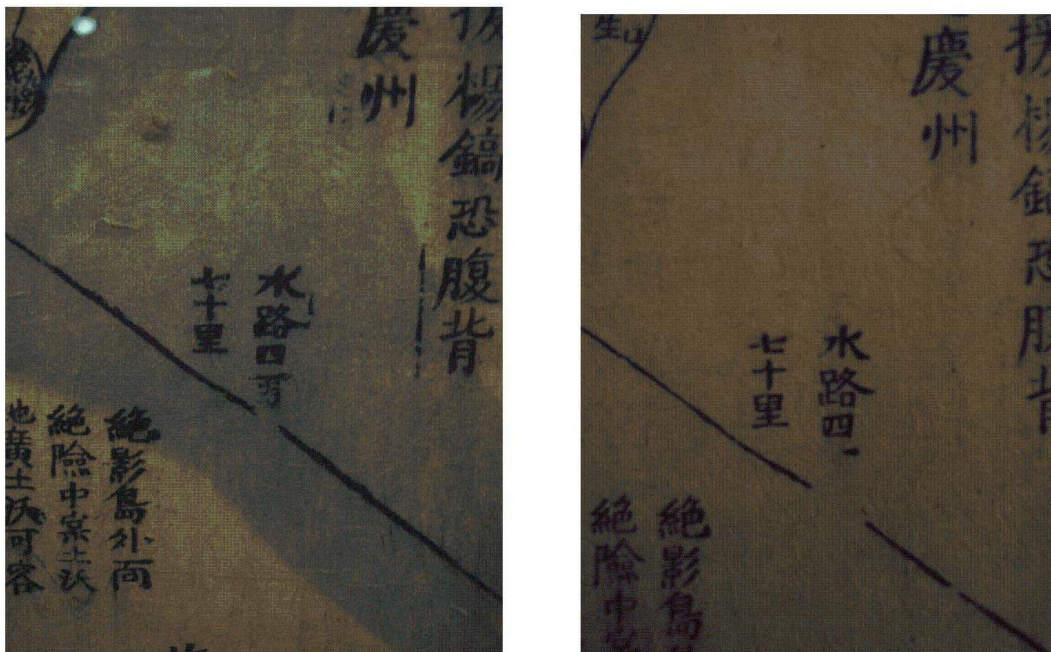 楊鎬恐腹背
慶州
水路四
七十里
絶影島外面
絶險中土沃
也廣土沃可容
援楊鎬恐腹背
慶州
水路四
七十里
絶影島
絶險中